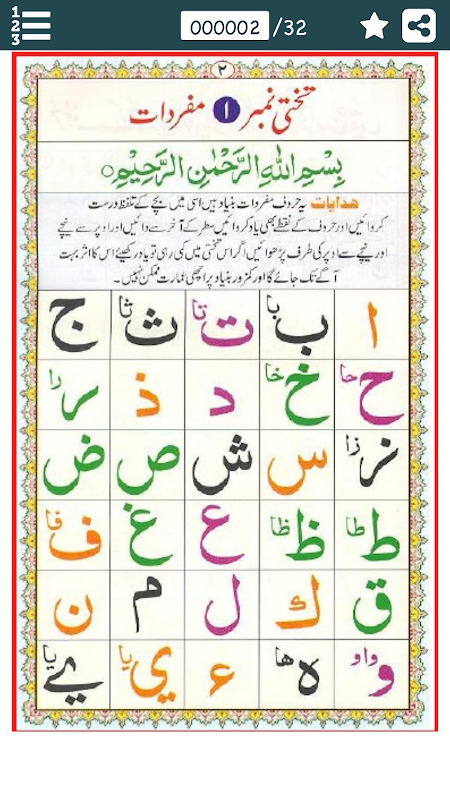 1
2
3
000002 /32
۲
تختی نمبر ۱ مفردات
بِسْمِ اللّٰهِ الرَّحْمٰنِ الرَّحِیْمِ
ھدایات یہ حروف مفردات بنیاد ہیں اسی میں بچے کے تلفظ درست
کروائیں اور حروف کے نقطے بھی یاد کروائیں سطر کے آخر سے دائیں اور اوپر سے نیچے
اور نیچے سے اوپر کی طرف پڑھوائیں اگر اس تختی میں کمی رہی تو یاد رکھیئے اس کا اثر بہت
آگے تک جائے گا اور کمزور بنیاد پر اچھی عمارت ممکن نہیں۔
ا ب با ت تا ث ثا ج
ح حا خ خا د ذ ر را
ز زا س ش ص ض
ط طا ظ ظا ع غ ف فا
ق ك ل م ن
و واو ه ها ء ي یا ے یا